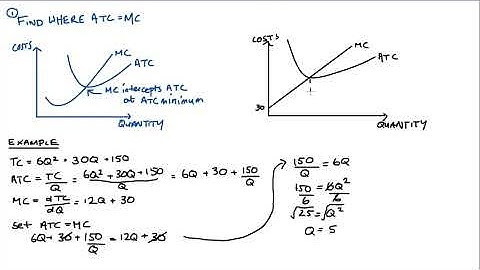 ① FIND WHERE ATC = MC
COSTS
MC
ATC
MC intercepts ATC
at ATC minimum
QUANTITY
COSTS
MC
ATC
30
QUANTITY
EXAMPLE
TC = 6Q² + 30Q + 150
ATC = TC/Q = (6Q² + 30Q + 150)/Q = 6Q + 30 + 150/Q
MC = dTC/dQ = 12Q + 30
Set ATC = MC
6Q + 30 + 150/Q = 12Q + 30
150/Q = 6Q
150/6 = 6Q²/6
√25 = √Q²
Q = 5